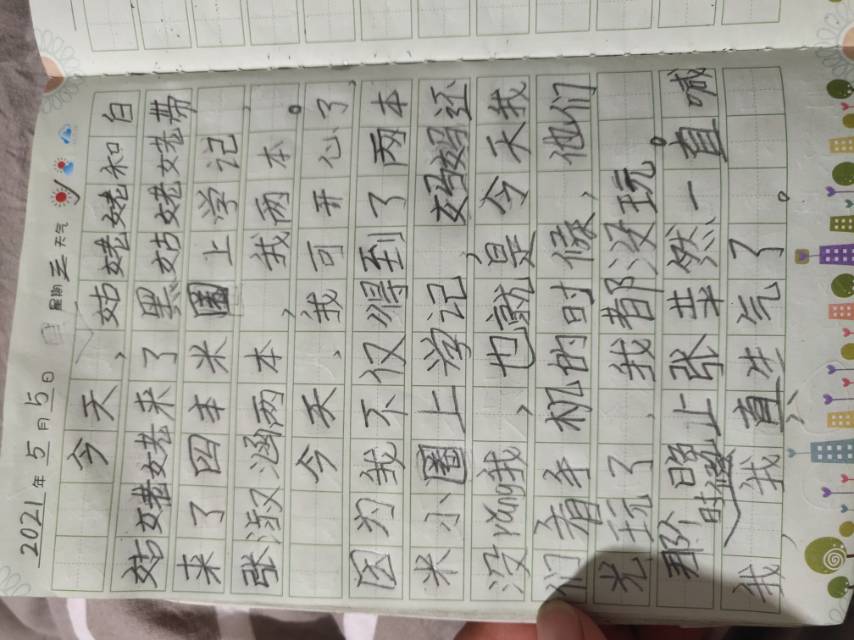 2021年5月5日 星期三 天气
今天，姑姥姥和白
姑姥姥来了黑姑姥姥带
来了四本米圈上学记，
张淑涵两本，我两本。
今天，我可开心了，
因为我不仅得到了两本
米小圈上学记，妈妈还
没rang我，也就是今天我
们看手机的时候，他们
光玩了，我都没玩。
那个晚上张业然一直喊
时候
我，我直生气了。